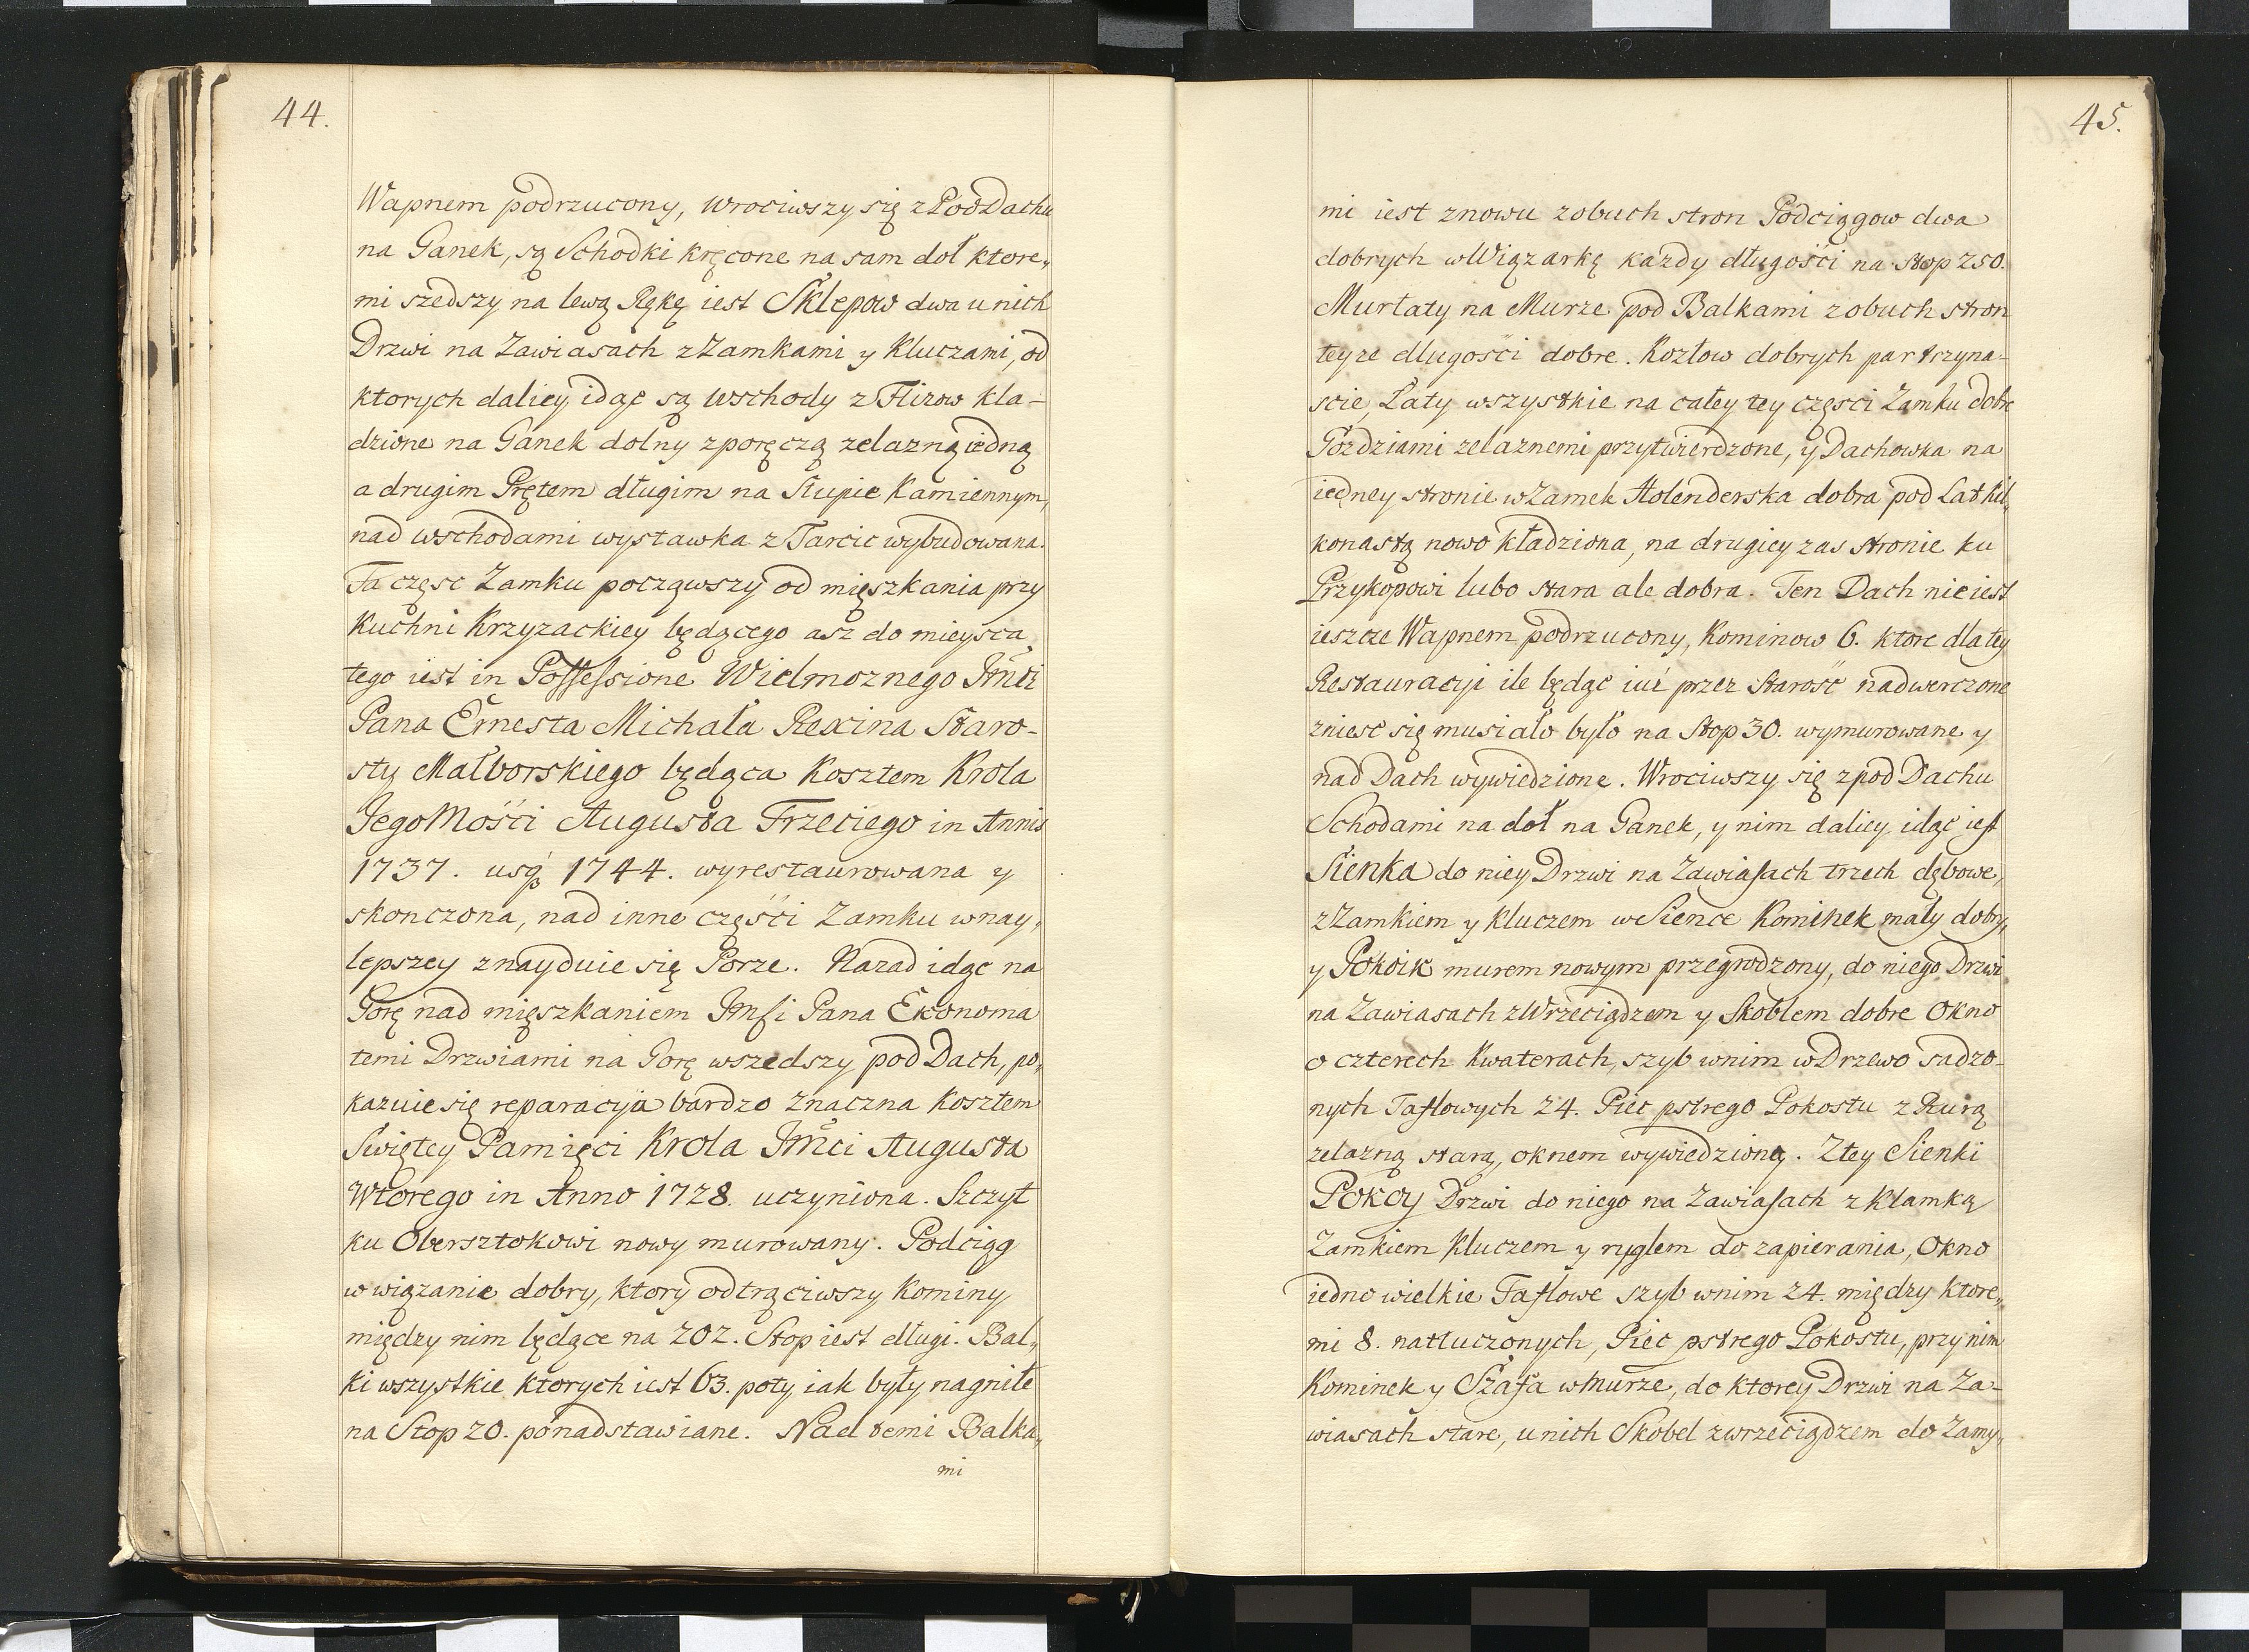 44.
Wapnem podrzucony, wrociwszy się z Pod Dachu
na Ganek, są Schodki kręcone na sam doł ktore„
mi szedszy na lewą Rękę iest Sklepow dwa u nich
Drzwi na Zawiasach z Zamkami y Kluczami, od
ktorych daliey idąc są wschody z Flizow kla-
dzione na Ganek dolny z poręczą zelazną iedną
a drugim Prętem długim na Słupie Kamiennym,
nad wschodami wystawka z Tarcic wybudowana.
Ta częsc Zamku począwszy od mięszkania przy
Kuchni Krzyzackiey będącego asz do mieysca
tego iest in Possessione Wielmoznego Jmći
Pana Ernesta Michała Rexina Staro-
sty Malborskiego będąca Kosztem Krola
JegoMośći Augusta Trzeciego in Annis
1737. usqz 1744. wyrestaurowana y
skonczona, nad inne częśći Zamku w nay„
lepszey znayduie się Porze. Nazad idąc na
Gorę nad mięszkaniem Jmsi Pana Ekonoma
temi Drzwiami na Gorę wszedszy pod Dach, po„
kazuie się reparacyja bardzo znaczna Kosztem
Swiętey Pamięci Krola Jmći Augusta
Wtorego in Anno 1728. uczyniona. Szczyt
ku Obersztokowi nowy murowany. Podciąg
w wiązanie dobry, ktory odtrąciwszy Kominy
między nim będące na 202. Stop iest długi. Bal„
ki wszystkie ktorych iest 63. poty iak były nagniłe
na Stop 20. ponadstawiane. Nad temi Balka„
mi
45.
mi iest znowu z obuch stron Podciągow dwa
dobrych w Wiązarkę kazdy długośći na Stop 250.
Murłaty na Murze pod Balkami z obuch stron
teyze długośći dobre. Kozłow dobrych par trzyna-
scie, Łaty wszystkie na całey tey częsci Zamku dobr
Gozdziami zelaznemi przytwierdzone, y Dachowka na
iedney stronie w Zamek Holenderska dobra pod Lat kil„
konastą nowo kładziona, na drugiey zas stronie ku
Przykopowi lubo stara ale dobra. Ten Dach nie iest
ieszcze Wapnem podrzucony, Kominow 6. ktore dla tey
Restauracyi ile będąc iuż przez Starość nadwerczone
zniesć się musiało było na Stop 30. wymurowane y
nad Dach wywiedzione. Wrociwszy się z pod Dachu
Schodami na doł na Ganek, y nim daliey idąc iest
Sienka do niey Drzwi na Zawiasach trzech dębowe,
z Zamkiem y kluczem w Sience Kominek mały dobry,
y Pokoik murem nowym przegrodzony, do niego Drzwi
na Zawiasach z Wrzeciądzem y Skoblem dobre Okno
o czterech Kwaterach, szyb w nim w Drzewo sadzo-
nych Taflowych 24. Piec pstrego Pokostu z Rurą
zelazną starą, oknem wywiedzioną. Z tey Sienki
Pokoy Drzwi do niego na Zawiasach z Klamką
Zamkiem Kluczem y ryglem do zapierania, Okno
iedno wielkie Taflowe szyb w nim 24. między ktore„
mi 8. natłuczonych, Piec pstrego Pokostu, przy nim
Kominek y Szafa w Murze, do ktorey Drzwi na Za-
wiasach stare, u nich Skobel z wrzeciądzem do Zamy„